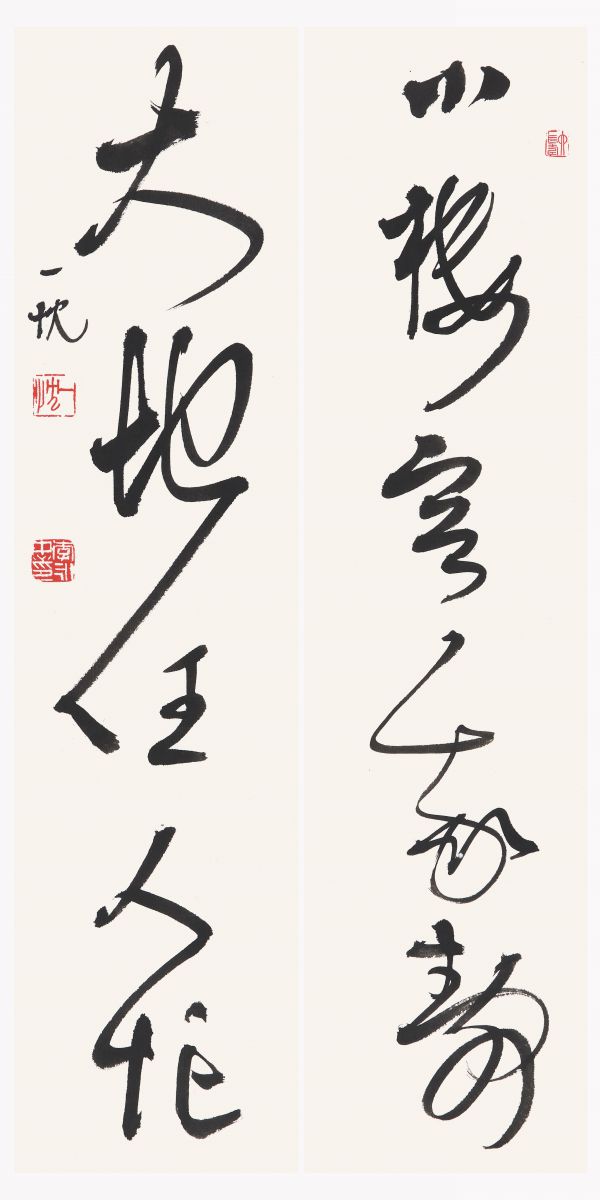 小樓容我靜
大地任人忙
一忱